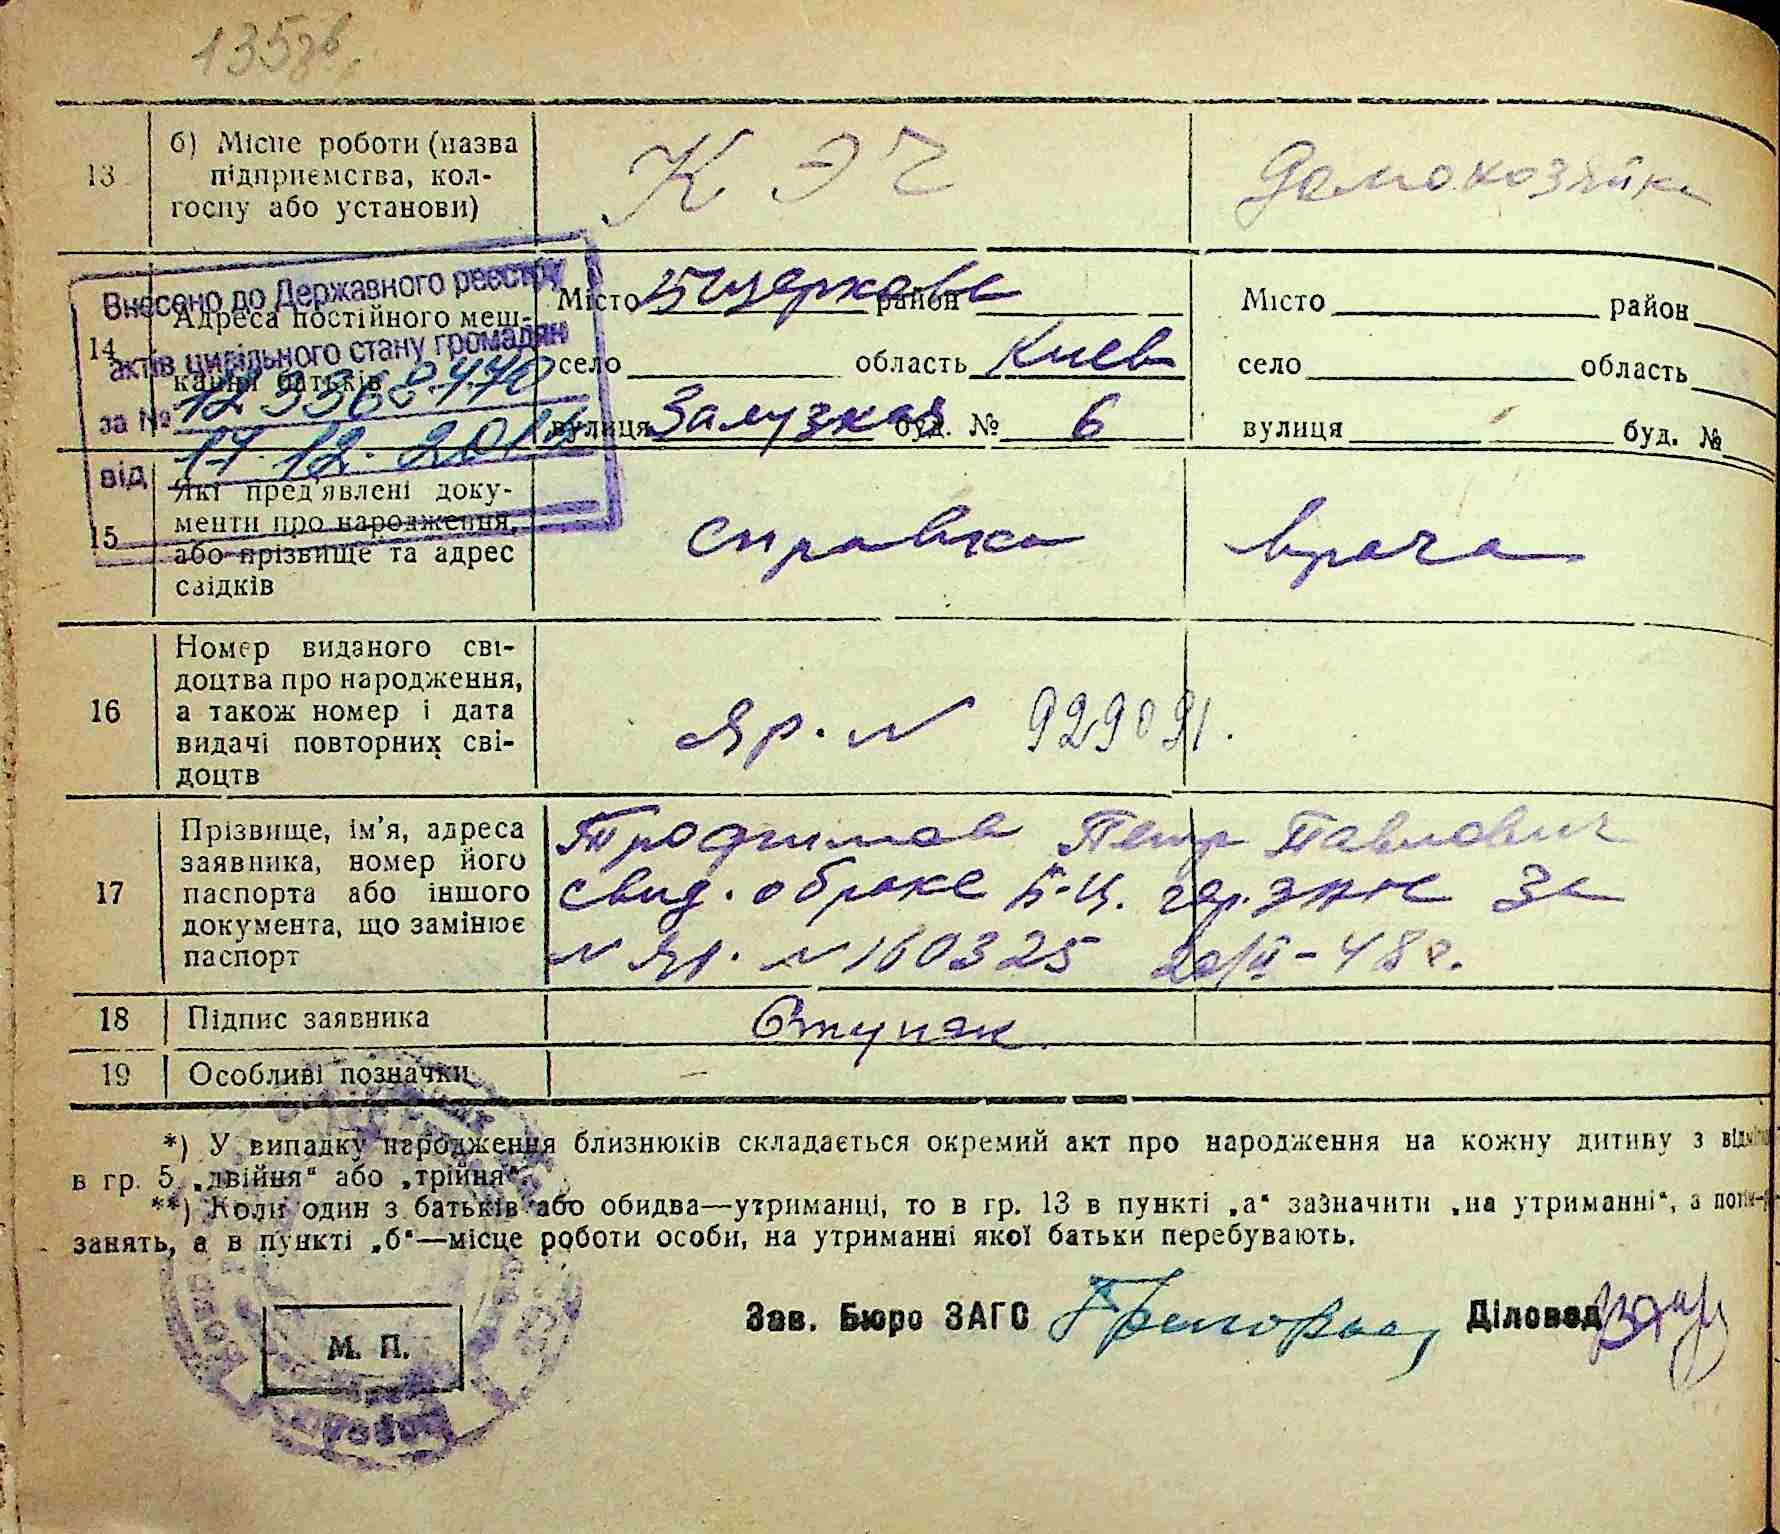 135зв.
13 б) Місце роботи (назва
підприємства, кол-
госпу або установи)
КЭЧ
Домохозяйка
Внесено до Державного реєстру
актів цивільного стану громадян
за №
від 17.12.201
14 Адреса постійного меш-
кання батьків
Місто Б Церковь район
село область Киев
вулиця буд. № 6
Місто район
село область
вулиця буд. №
15 Які пред'явлені доку-
менти про народження,
або прізвище та адрес
свідків
справка врача
16 Номер виданого сві-
доцтва про народження,
а також номер і дата
видачі повторних сві-
доцтв
Яр. N 929091.
17 Прізвище, ім'я, адреса
заявника, номер його
паспорта або іншого
документа, що замінює
паспорт
Трофимов Петр Павлович
свид. о браке Б-Ц. гор. ЗАГС За
N Яр. N 160325 20/II-48 г.
18 Підпис заявника
19 Особливі позначки
*) У випадку народження близнюків складається окремий акт про народження на кожну дитину з відмі
в гр. 5 „двійня“ або „трійня“.
**) Коли один з батьків або обидва—утриманці, то в гр. 13 в пункті „а“ зазначити „на утриманні“, з
занять, а в пункті „б“—місце роботи особи, на утриманні якої батьки перебувають.
Зав. Бюро ЗАГС Діловод
М. П.